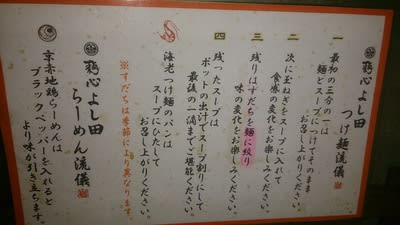 鶏心よし田 つけ麺流儀
一
最初の三分の一は
麺とスープにつけてそのまま
お召し上がりください。
二
次に玉ねぎをスープに入れて
食感の変化をお楽しみください。
三
残りはすだちを麺に絞り
味の変化をお楽しみください。
四
残ったスープは
ポットの出汁でスープ割りにして
最後の一滴までご堪能ください。
海老つけ麺のパンは
スープにひたして
お召し上がりください。
※すだちは季節により異なります。
鶏心よし田
らーめん流儀
京赤地鶏らーめんは
ブラックペッパーを入れると
より味が引き立ちます。